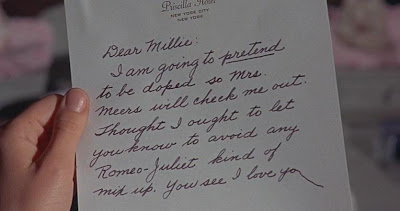 Priscilla Hotel
NEW YORK CITY
NEW YORK
Dear Millie:
I am going to pretend
to be doped so Mrs.
Meers will check me out.
Thought I ought to let
you know to avoid any
Romeo-Juliet kind of
mix up. You see I love you